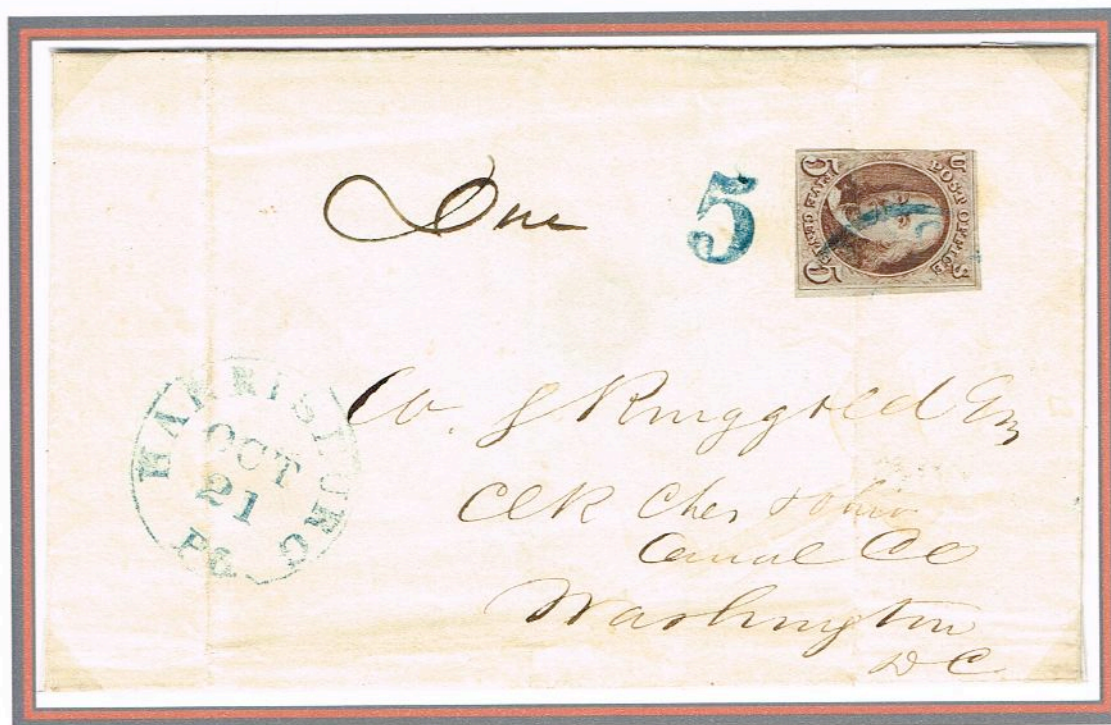 Due 5
U S
POST OFFICE
5 5
HARRISBURG
OCT
21
Pa.
W. S Ringgold Esq
Clk Ches & Ohio
Canal Co
Washington
D C